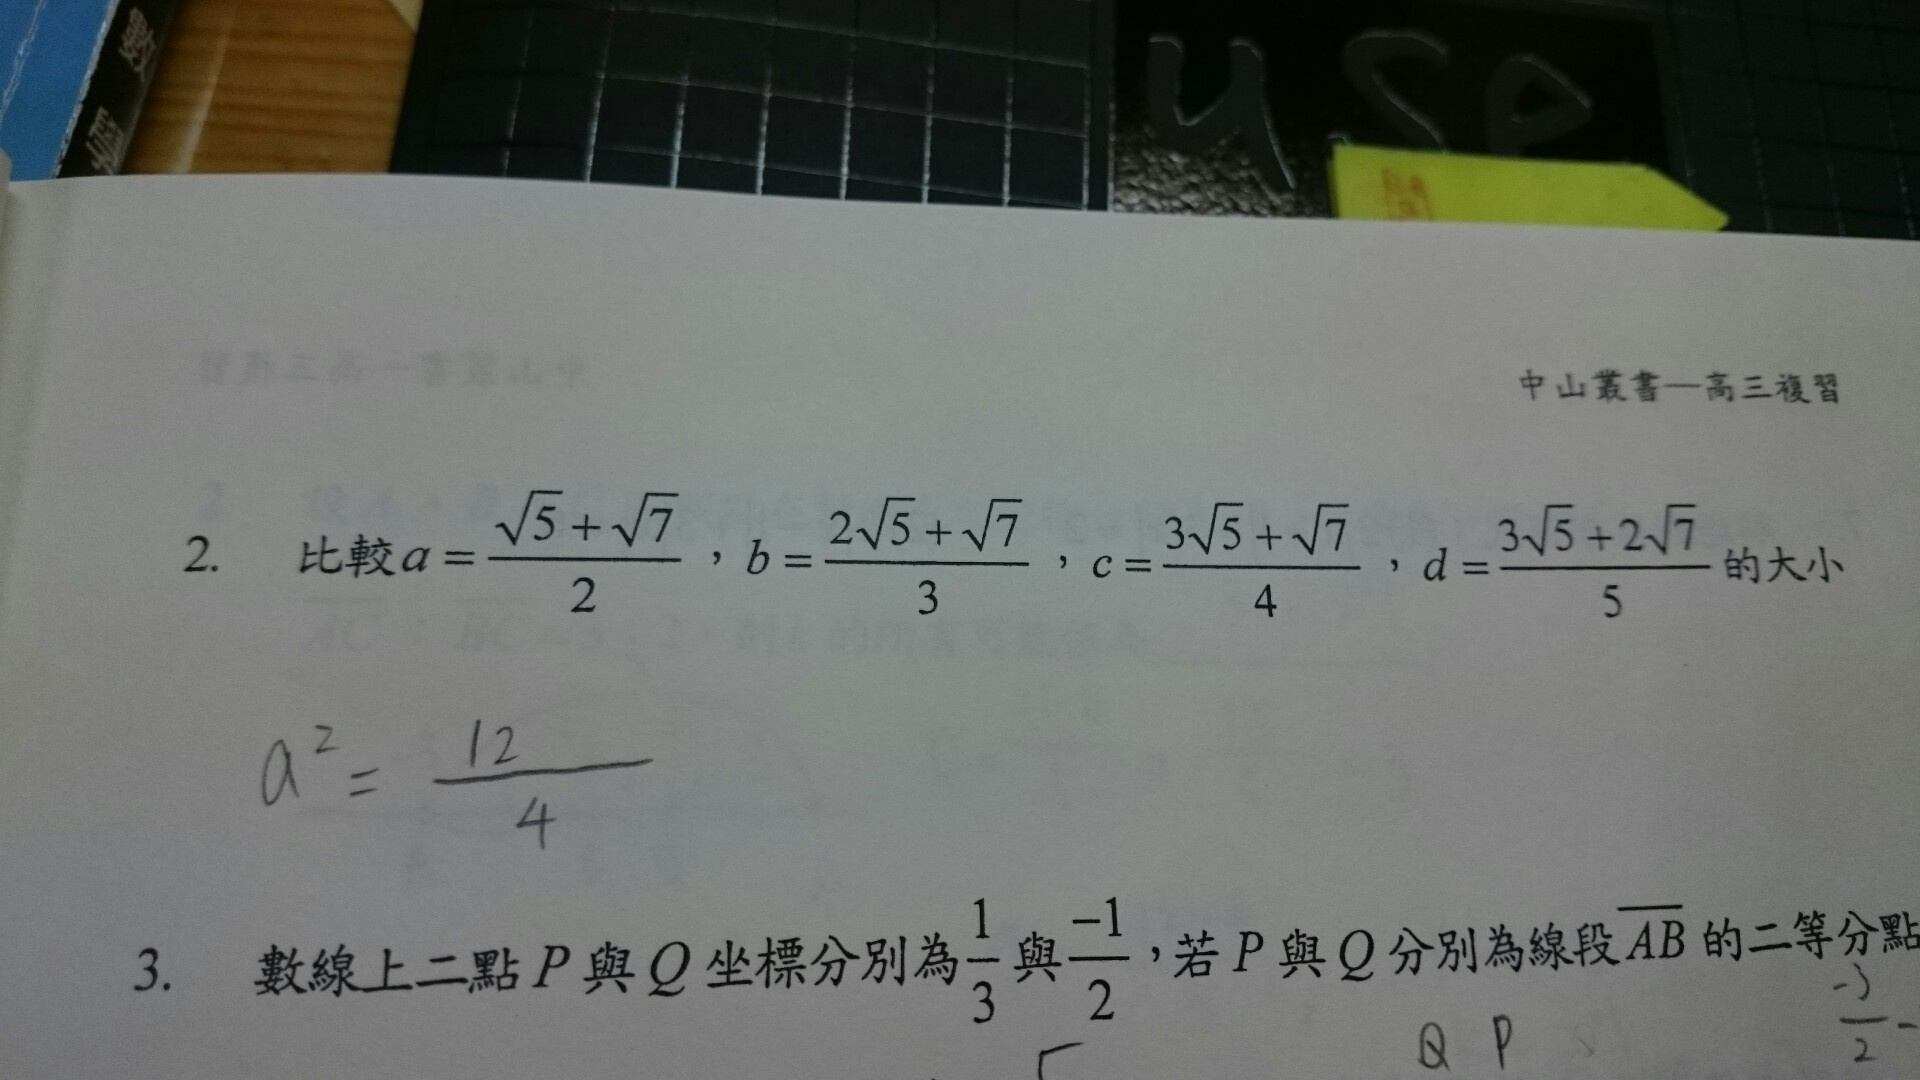 中山叢書—高三複習
2. 比較 a = \frac{\sqrt{5}+\sqrt{7}}{2} , b = \frac{2\sqrt{5}+\sqrt{7}}{3} , c = \frac{3\sqrt{5}+\sqrt{7}}{4} , d = \frac{3\sqrt{5}+2\sqrt{7}}{5} 的大小
a^2 = \frac{12}{4}
3. 數線上二點 P 與 Q 坐標分別為 \frac{1}{3} 與 \frac{-1}{2} , 若 P 與 Q 分別為線段 \overline{AB} 的二等分點
Q P